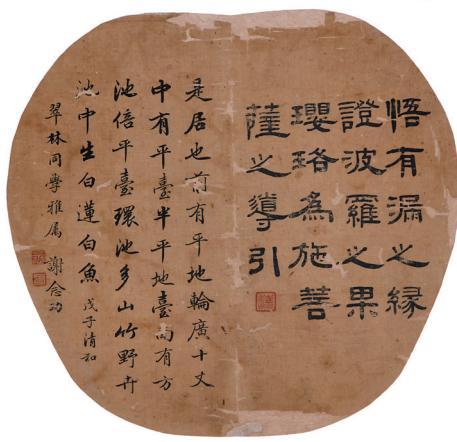 悟有漏之緣
證波羅之果
瓔珞為施菩
薩之導引
是居也前有平地輪廣十丈
中有平臺半平地臺南有方
池倍平臺環池多山竹野卉
池中生白蓮白魚 戊子清和
翠林同學雅屬 謝念功